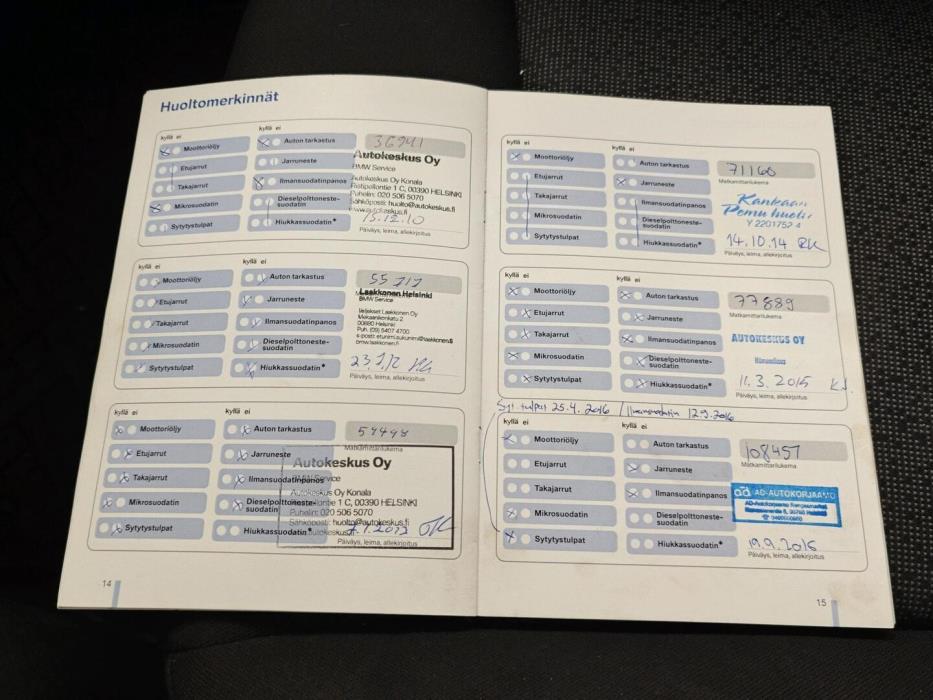 Huoltomerkinnät
kyllä ei kyllä ei
Moottoriöljy Auton tarkastus 36941
Etujarrut Jarruneste
Takajarrut Ilmansuodatinpanos
Mikrosuodatin Dieselpolttoneste-
suodatin
Sytytystulpat Hiukkassuodatin*
Autokeskus Oy
BMW Service
Autokeskus Oy Konala
Ristipellontie 1 C, 00390 HELSINKI
Puhelin: 020 506 5070
Sähköposti: huolto@autokeskus.fi
www.autokeskus.fi
15.12.10
Päiväys, leima, allekirjoitus
kyllä ei kyllä ei
Moottoriöljy Auton tarkastus
Etujarrut Jarruneste
Takajarrut Ilmansuodatinpanos
Mikrosuodatin Dieselpolttoneste-
suodatin
Sytytystulpat Hiukkassuodatin*
Laakkonen Helsinki
BMW Service
Veljekset Laakkonen Oy
Mekaanikonkatu 2
00880 Helsinki
Puh. (09) 5407 4700
Päiväys, leima, allekirjoitus
kyllä ei kyllä ei
Moottoriöljy Auton tarkastus
Etujarrut Jarruneste
Takajarrut Ilmansuodatinpanos
Mikrosuodatin Dieselpolttoneste-
suodatin
Sytytystulpat Hiukkassuodatin*
59498
Matkamittarilukema
Autokeskus Oy
BMW Service
Autokeskus Oy Konala
1 C, 00390 HELSINKI
Puhelin: 020 506 5070
Sähköposti: huolto@autokeskus.fi
Päiväys, leima, allekirjoitus
14
kyllä ei kyllä ei
Moottoriöljy Auton tarkastus 71160
Matkamittarilukema
Etujarrut Jarruneste
Takajarrut Ilmansuodatinpanos
Mikrosuodatin Dieselpolttoneste-
suodatin
Sytytystulpat Hiukkassuodatin*
Kankaan
Pemu huolto
Y 2201752 4
14.10.14 RK
Päiväys, leima, allekirjoitus
kyllä ei kyllä ei
Moottoriöljy Auton tarkastus 77889
Matkamittarilukema
Etujarrut Jarruneste
Takajarrut Ilmansuodatinpanos
Mikrosuodatin Dieselpolttoneste-
suodatin
Sytytystulpat Hiukkassuodatin*
AUTOKESKUS OY
11.3.2015
Päiväys, leima, allekirjoitus
Syt tulpat 25.4.2016 / Ilmansuodatin 12.9.2016
kyllä ei kyllä ei
Moottoriöljy Auton tarkastus 108457
Matkamittarilukema
Etujarrut Jarruneste
Takajarrut Ilmansuodatinpanos
Mikrosuodatin Dieselpolttoneste-
suodatin
Sytytystulpat Hiukkassuodatin*
ad AD-AUTOKORJAAMO
19.9.2016
Päiväys, leima, allekirjoitus
15